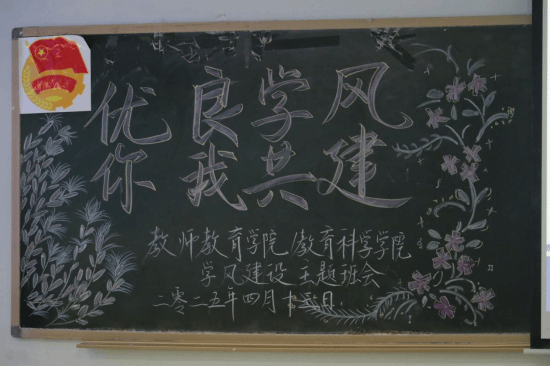 优良学风
你我共建
教师教育学院/教育科学学院
学风建设主题班会
二零二五年四月十三日